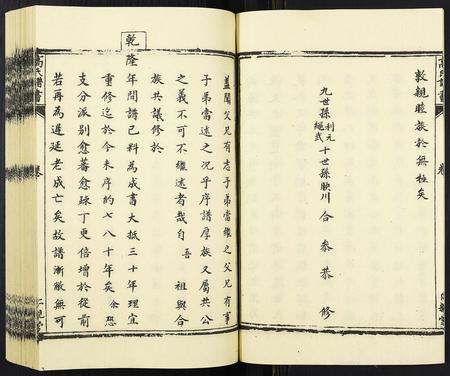 敦親睦族於無極矣
九世孫利元繩武十世孫映川合參恭修
蓋聞父兄有志子弟當繼之父兄有事
子弟當述之況乎序譜厚族又屬共公
之義不可不繼述者哉自吾祖與合
族共議修於
乾隆年間譜已料為成書大抵三十年理宜
重修迄於今未序約七八十年矣余恐
支分派別愈蕃愈踈丁更倍增於從前
若再為遲延老成亡矣故譜漸散無可
高氏譜書
卷